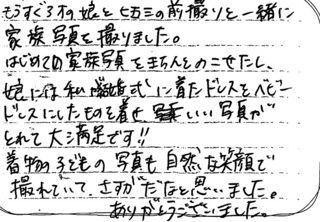 もうすぐ3才の娘と七五三の前撮りと一緒に
家族写真を撮りました。
はじめての家族写真をきちんとのこせたし、
娘には私が結婚式に着たドレスをベビー
ドレスにしたものを着せ、いい写真が
とれて大満足です!!
着物の子どもの写真も自然な笑顔で
撮れていて、さすがだなと思いました。
ありがとうございました。